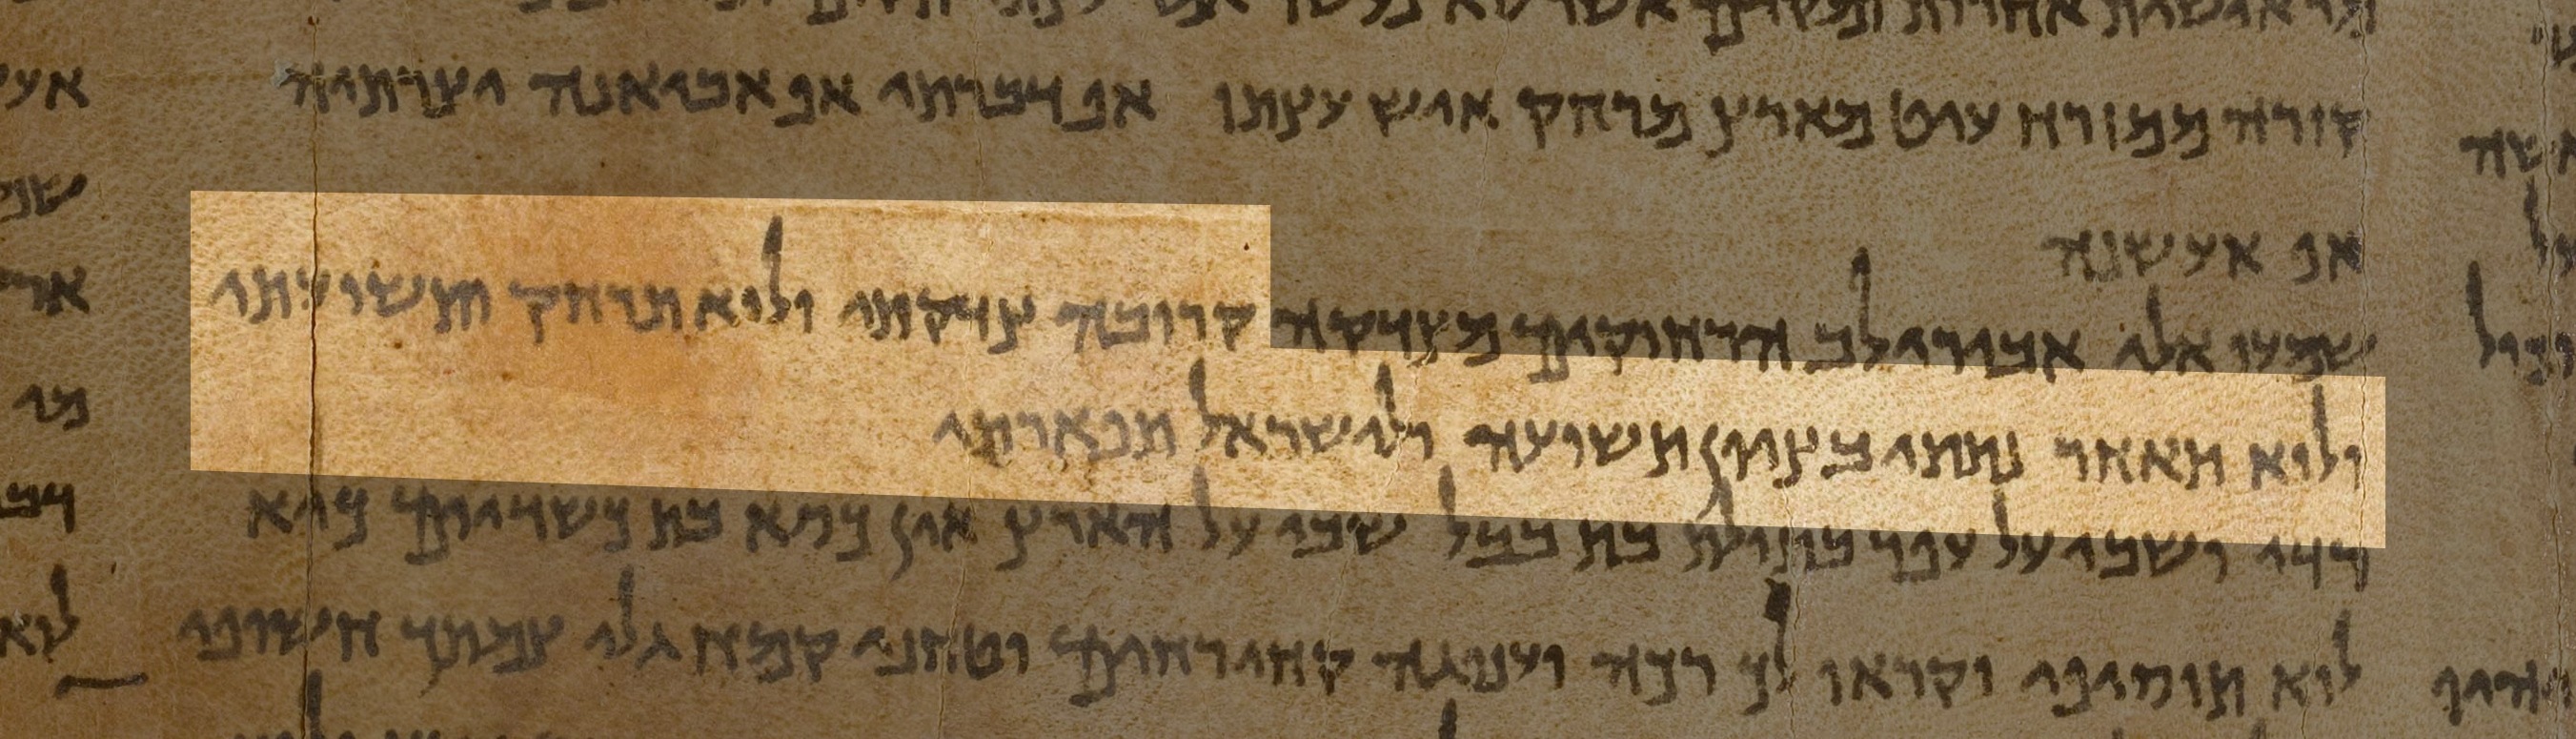 קורה ממזרח עיט מארץ מרחק איש עצתו אפ דברתי אפ אביאנה יצרתיה
אפ אעשנה
שמעו אלי אבירי לב הרחוקים מצדקה קרובה צדקתי ולוא תרחק ותשועתי
ולוא תאחר נתתי בציון תשועה ולישראל תפארתי
רדי ושבי על עפר בתולת בת בבל שבי על הארץ אין כסא בת כשדיים כיא
לוא תוסיפי וקראו לך רכה וענוגה קחי רחים וטחני קמח גלי צמתך חשופי